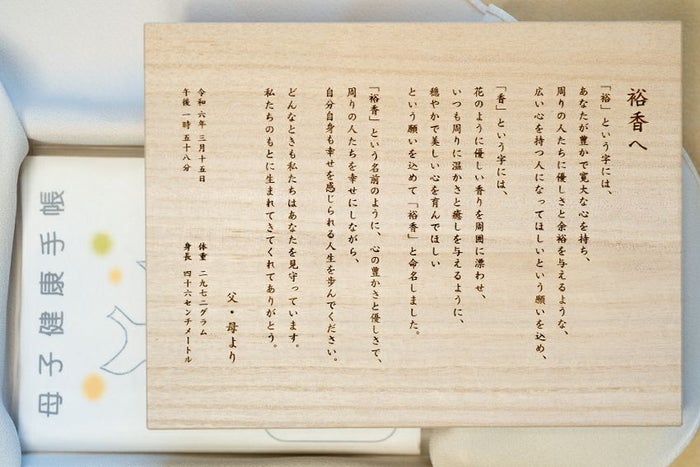 裕香へ
「裕」という字には、
あなたが豊かで寛大な心を持ち、
周りの人たちに優しさと余裕を与えるような、
広い心を持つ人になってほしいという願いを込め、
「香」という字には、
花のように優しい香りを周囲に漂わせ、
いつも周りに温かさと癒しを与えるように、
穏やかで美しい心を育んでほしい
という願いを込めて「裕香」と命名しました。
「裕香」という名前のように、心の豊かさと優しさで、
周りの人たちを幸せにしながら、
自分自身も幸せを感じられる人生を歩んでください。
どんなときも私たちはあなたを見守っています。
私たちのもとに生まれてきてくれてありがとう。
父・母より
令和六年 三月十五日
午後 一時 五十八分
体重 二九七二グラム
身長 四十六センチメートル
母子健康手帳